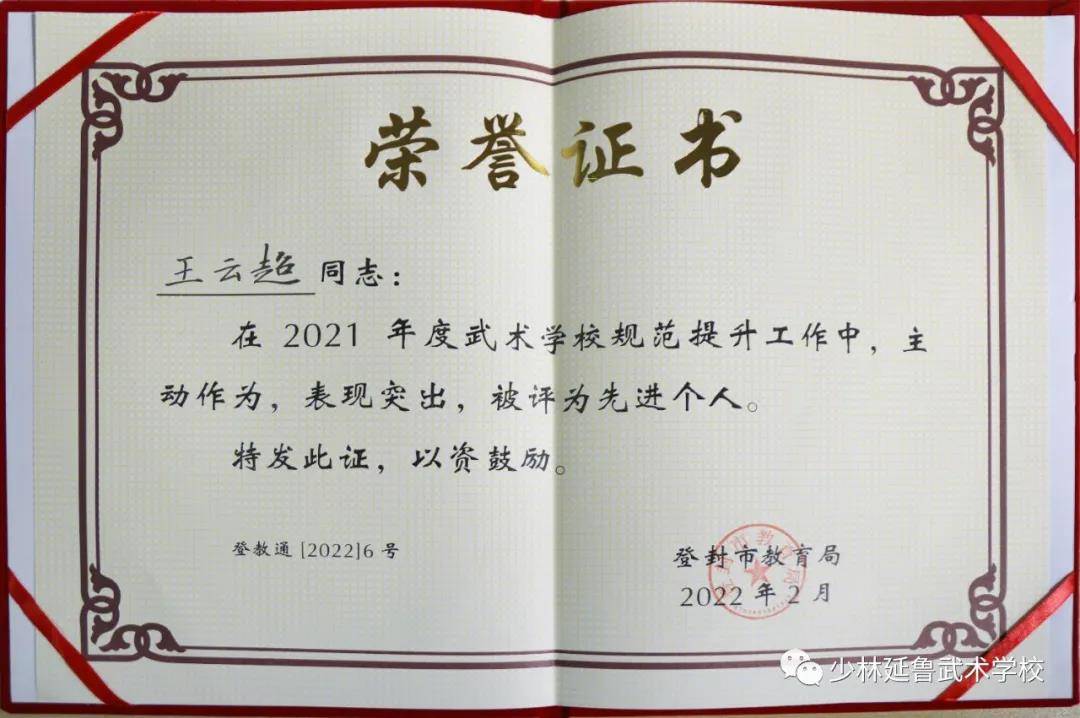 荣誉证书
王云超 同志：
在 2021 年度武术学校规范提升工作中，主
动作为，表现突出，被评为先进个人。
特发此证，以资鼓励。
登教通 [2022]6 号
登封市教育局
2022 年 2 月
少林延鲁武术学校